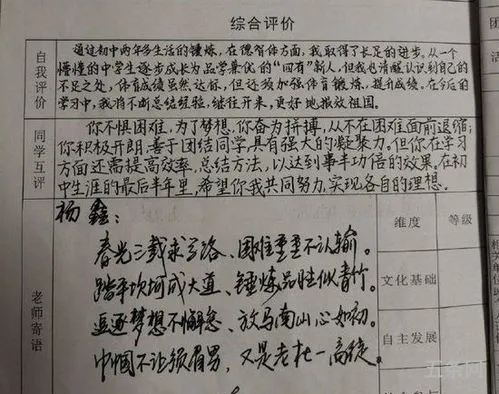 综合评价
自我评价
通过初中两年多生活的锤炼，在德智体方面，我取得了长足的进步。从一个
懵懂的中学生逐步成长为品学兼优的“四有”新人，但我也清醒认识到自己的
不足之处，体育成绩虽然达标，但还须加强体育锻炼，提升成绩。在今后的
学习中，我将不断总结经验，继往开来，更好地报效祖国。
同学互评
你不惧困难，为了梦想，你奋力拼搏，从不在困难面前退缩；
你积极开朗，善于团结同学，具有强大的凝聚力。但你在学习
方面还需提高效率，总结方法，以达到事半功倍的效果，在初
中生涯的最后半年里，希望你我共同努力，实现各自的理想。
老师寄语
杨鑫：
春光三载求学路、困难重重不认输。
踏平坎坷成大道、锤炼品性似青竹。
追逐梦想不懈怠、放马南山心如初。
巾帼不让须眉男，又是老杜一高徒。
维度
等级
文化基础
自主发展